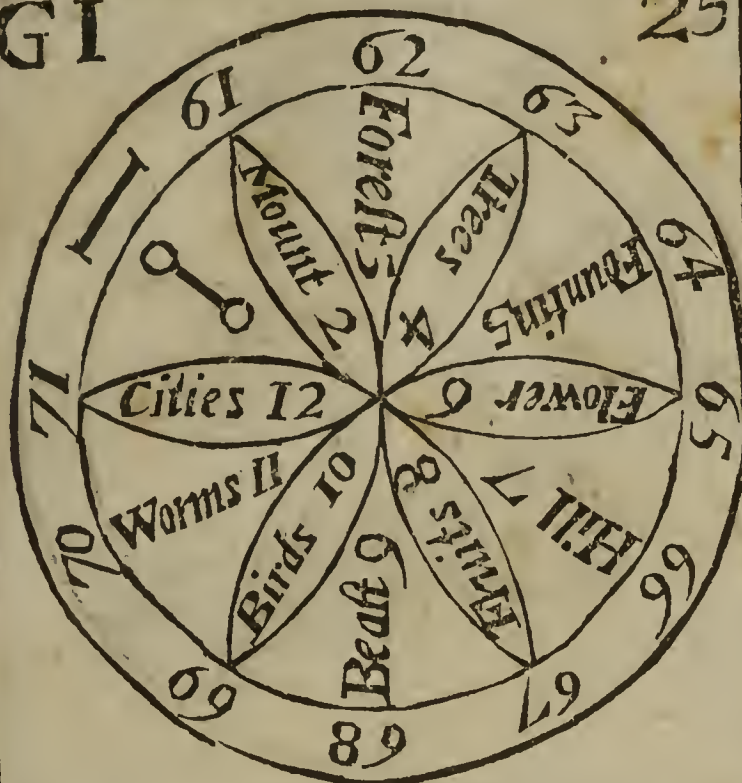 GI
25
I
61
62
63
64
65
66
67
68
69
70
71
Mount 2
Foreſt 3
Trees 4
Fountin 5
Flower 6
Hill 7
Fruits 8
Beaſt 9
Birds 10
Worms II
Cities I2